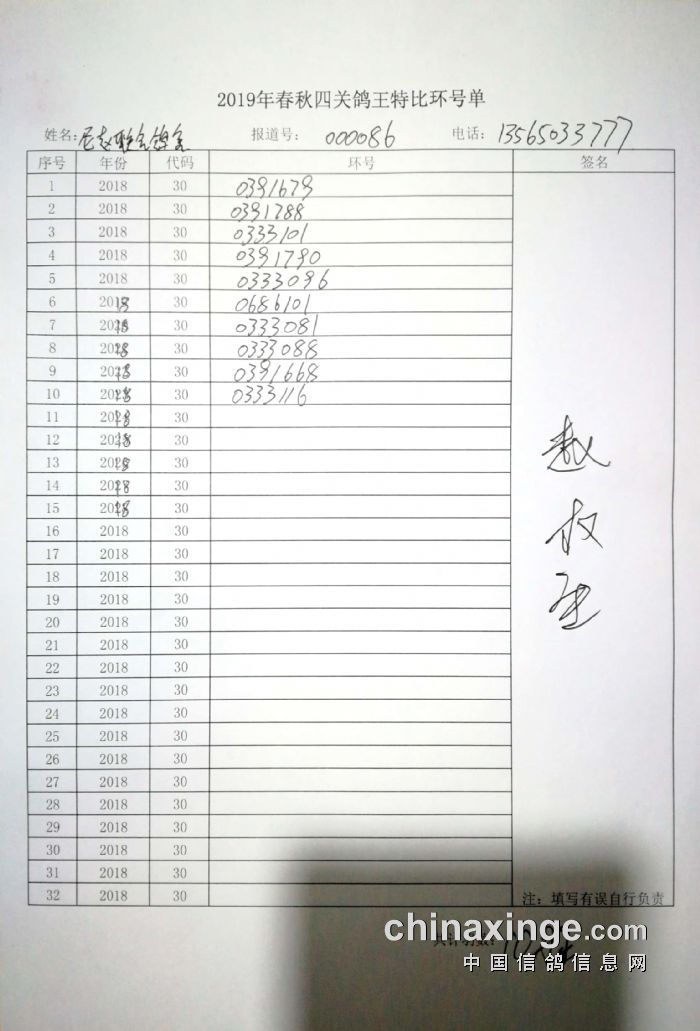 2019年春秋四关鸽王特比环号单
姓名: 尼赵联合鸽舍 报道号: 000086 电话: 13565033777
序号 年份 代码 环号 签名
1 2018 30 0391679
2 2018 30 0391788
3 2018 30 0333101
4 2018 30 0391790
5 2018 30 0333096
6 2018 30 0686101
7 2018 30 0333081
8 2018 30 0333088
9 2018 30 0391668
10 2018 30 0333116
11 2018 30
12 2018 30
13 2018 30
14 2018 30
15 2018 30
16 2018 30
17 2018 30
18 2018 30
19 2018 30
20 2018 30
21 2018 30
22 2018 30
23 2018 30
24 2018 30
25 2018 30
26 2018 30
27 2018 30
28 2018 30
29 2018 30
30 2018 30
31 2018 30
32 2018 30
赵
生
注: 填写有误自行负责
共计羽数:
chinaxinge.com
中国信鸽信息网